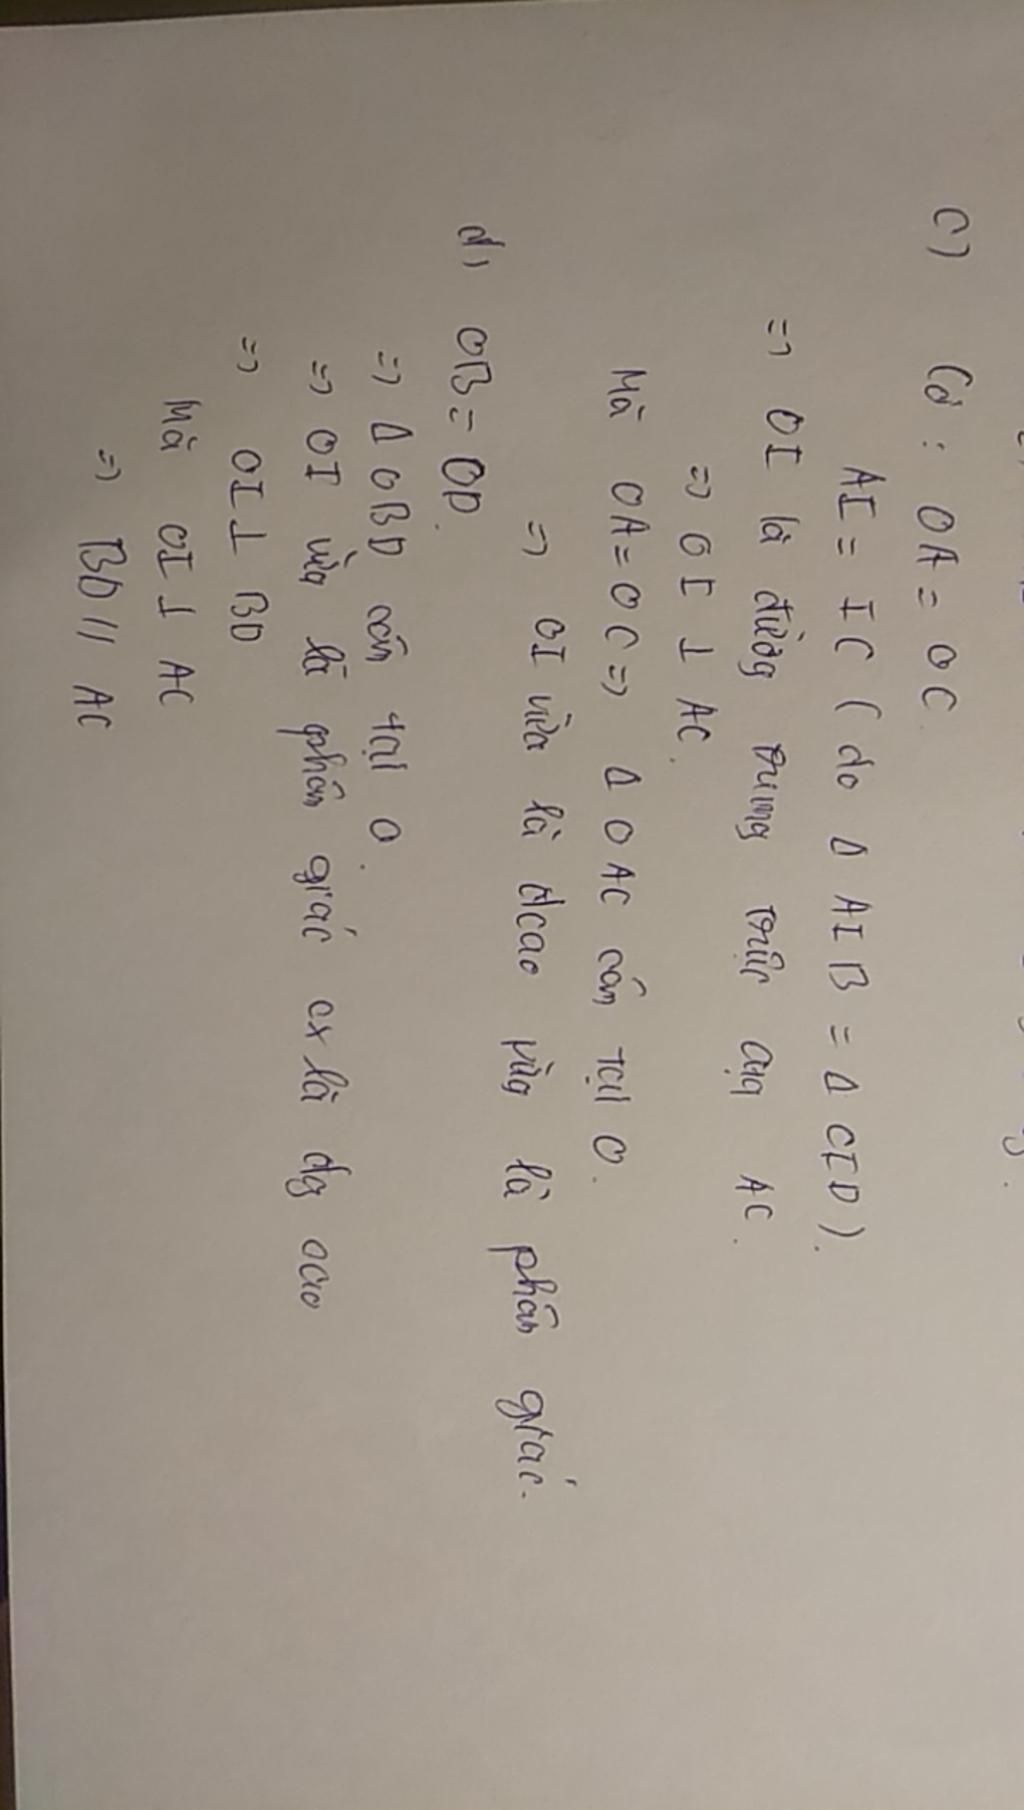 c) Có : OA = OC
AI = IC ( do Δ AIB = Δ CID ).
=> OI là đường trung trực của AC.
=> OI ⊥ AC.
Mà OA = OC => Δ OAC cân tại O.
=> OI vừa là đcao vừa là phân giác.
d, OB = OD.
=> Δ OBD cân tại O.
=> OI vừa là phân giác cx là đg cao
=> OI ⊥ BD
Mà OI ⊥ AC
=> BD // AC